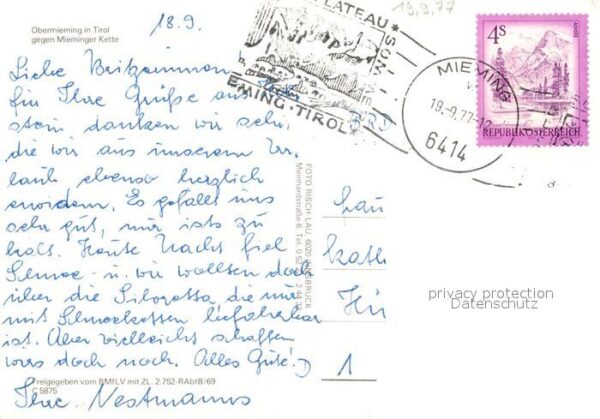 Obermieming in Tirol
gegen Mieminger Kette
18.9.
19.9.77
PLATEAU*
EMING·TIROL
MIEMING
19.-9.77-12
6414
4S
REPUBLIK ÖSTERREICH
Liebe
für Ihre Grüße aus
stein danken wir sehr,
die wir aus unserem Ur-
laub ebenso herzlich
erwidern. Es gefällt uns
sehr gut, nur ists zu
kalt. Heute Nacht fiel
Schnee u. wir wollten doch
über die Silvretta, die nur
mit Schneeketten befahrbar
ist. Aber vielleicht schaffen
wirs doch noch. Alles Gute!
Ihre Nestmanns
BRD
Lau
Kath
Hü
1
FOTO RISCH-LAU, 6020 INNSBRUCK
Meinhardstraße 6, Tel. 0 52
privacy protection
Datenschutz
Freigegeben vom BMfLV mit ZL. 2.752-RAbtB/69
C 5875